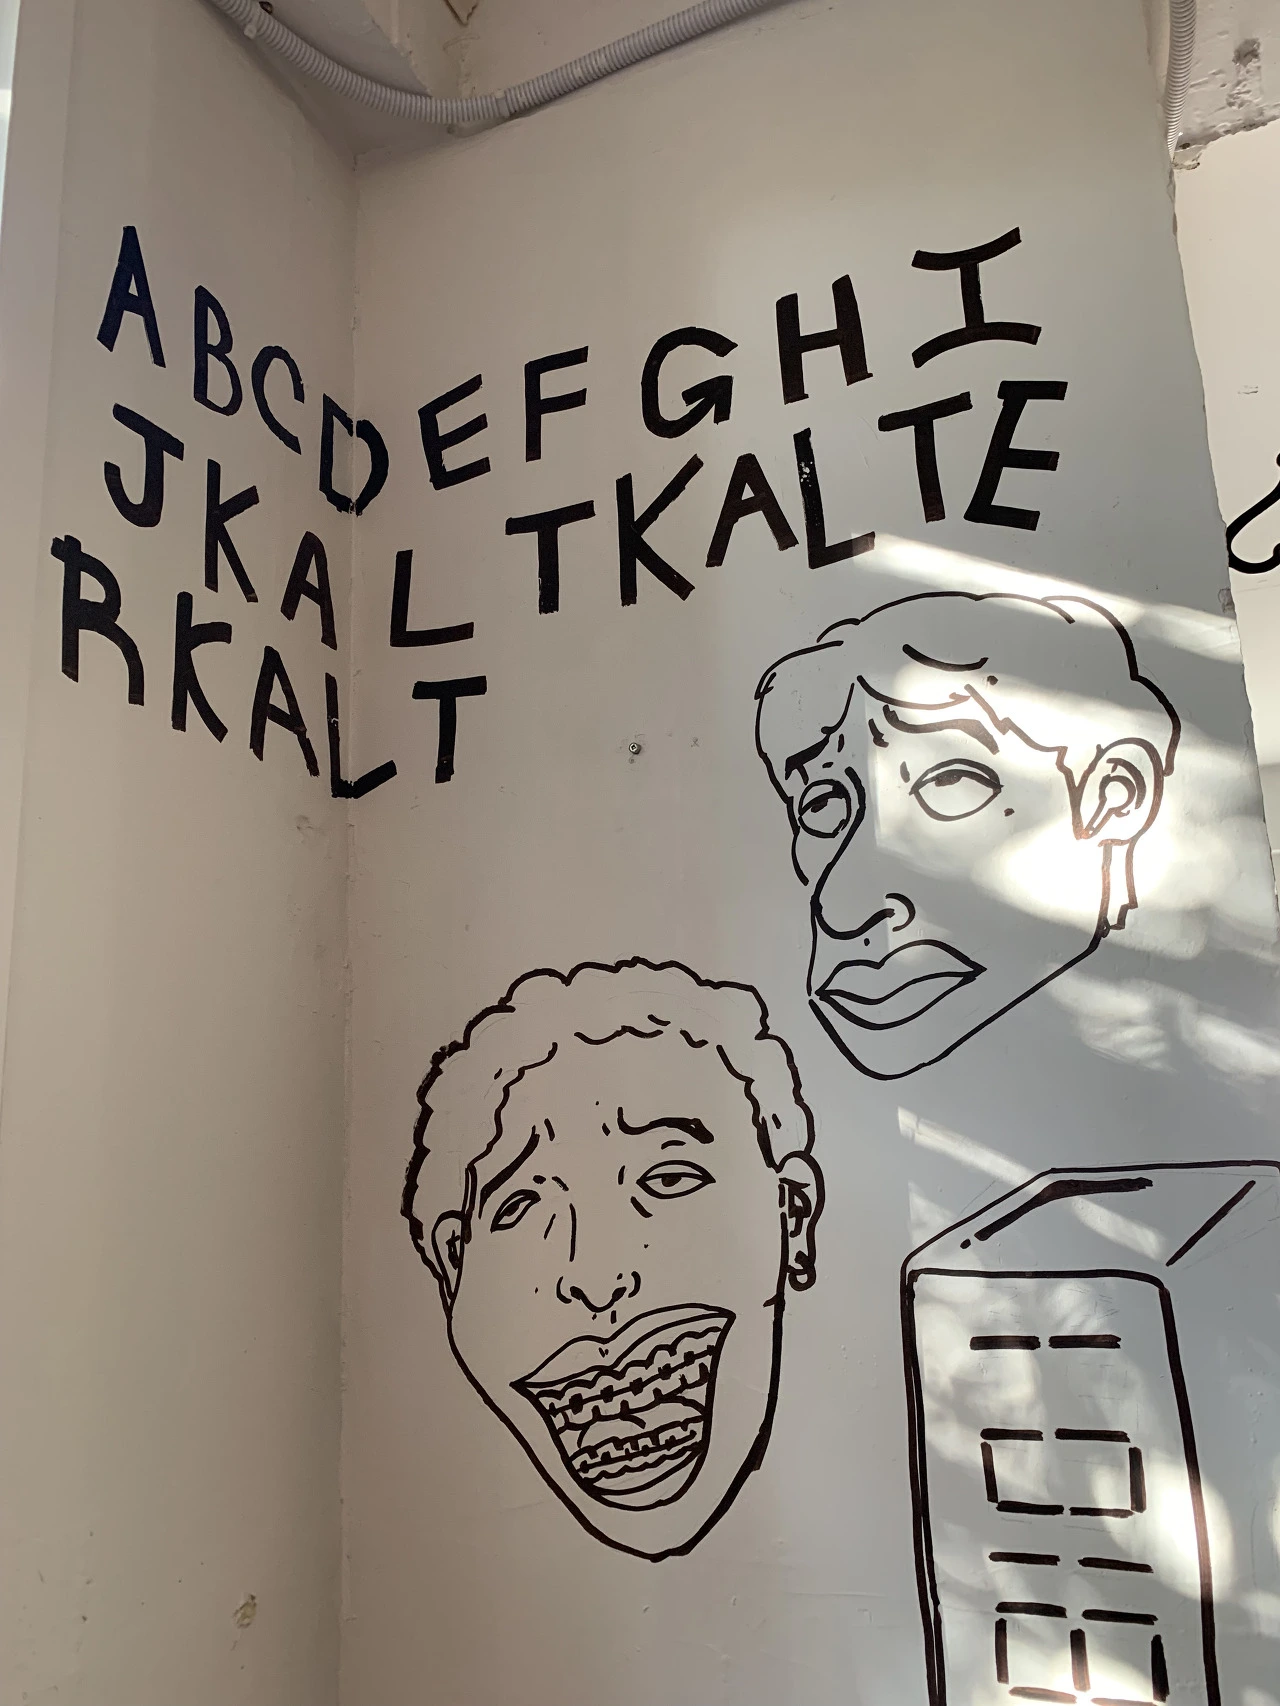 ABCDEFGHI
JKAL TKALTE
RKALT